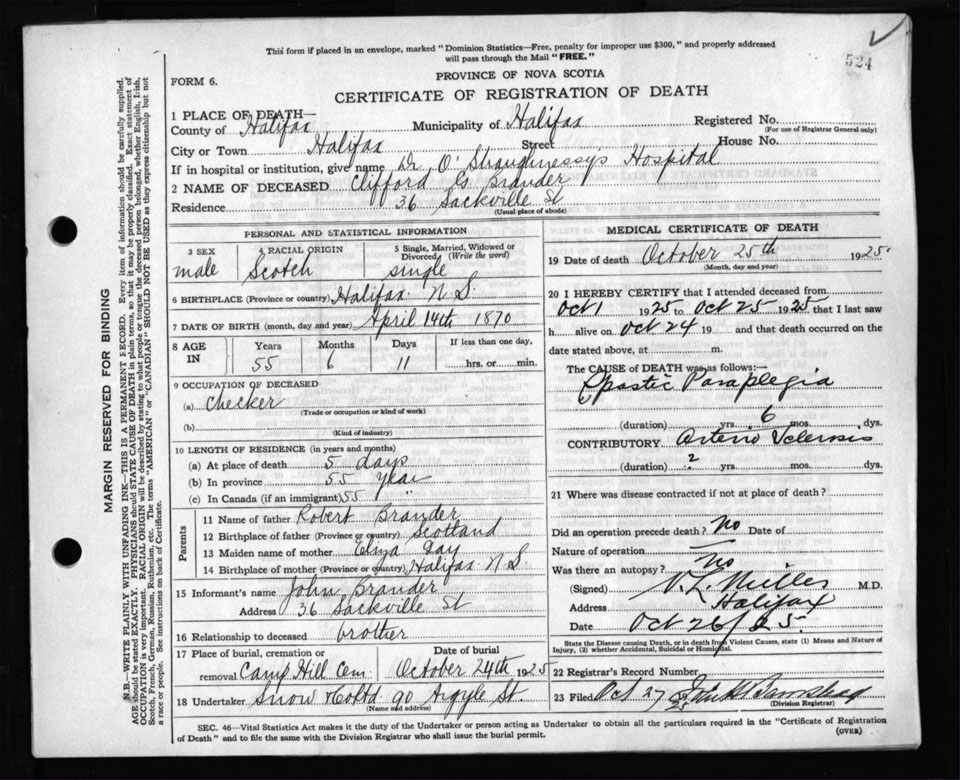 This form if placed in an envelope, marked "Dominion Statistics—Free, penalty for improper use $300," and properly addressed
will pass through the Mail "FREE."
524
PROVINCE OF NOVA SCOTIA
FORM 6.
CERTIFICATE OF REGISTRATION OF DEATH
1 PLACE OF DEATH—
County of Halifax Municipality of Halifax Registered No.
(For use of Registrar General only)
City or Town Halifax Street House No.
If in hospital or institution, give name Dr. O'Shaughnessy's Hospital
2 NAME OF DECEASED Clifford G. Brander
Residence 36 Sackville St
(Usual place of abode)
PERSONAL AND STATISTICAL INFORMATION
3 SEX 4 RACIAL ORIGIN 5 Single, Married, Widowed or Divorced (Write the word)
male Scotch single
6 BIRTHPLACE (Province or country) Halifax N S
7 DATE OF BIRTH (month, day and year) April 14th 1870
8 AGE IN Years Months Days If less than one day,
55 6 11 hrs. or min.
9 OCCUPATION OF DECEASED
(a) Checker
(Trade or occupation or kind of work)
(b)
(Kind of industry)
10 LENGTH OF RESIDENCE (in years and months)
(a) At place of death 5 days
(b) In province 55 years
(c) In Canada (if an immigrant) 55 "
Parents
11 Name of father Robert Brander
12 Birthplace of father (Province or country) Scotland
13 Maiden name of mother Eliza Day
14 Birthplace of mother (Province or country) Halifax N S
15 Informant's name John Brander
Address 36 Sackville St
16 Relationship to deceased brother
17 Place of burial, cremation or removal Camp Hill Cem Date of burial October 27th 1925
18 Undertaker Snow & Co Ltd 90 Argyle St.
(Name and address)
MEDICAL CERTIFICATE OF DEATH
19 Date of death October 25th 1925
(Month, day and year)
20 I HEREBY CERTIFY that I attended deceased from
Oct 1 1925 to Oct 25 1925 that I last saw
h alive on Oct 24 19 and that death occurred on the
date stated above, at m.
The CAUSE of DEATH was as follows:—
Spastic Paraplegia
(duration) yrs. 6 mos. dys.
CONTRIBUTORY Arterio Sclerosis
(duration) ? yrs. mos. dys.
21 Where was disease contracted if not at place of death?
Did an operation precede death? No Date of
Nature of operation
Was there an autopsy? No
(Signed) V. L. Miller M.D.
Address Halifax
Date Oct 26/25.
State the Disease causing Death, or in death from Violent Causes, state (1) Means and Nature of
Injury, (2) whether Accidental, Suicidal or Homicidal.
22 Registrar's Record Number
23 Filed Oct 27
(Division Registrar)
SEC. 46—Vital Statistics Act makes it the duty of the Undertaker or person acting as Undertaker to obtain all the particulars required in the "Certificate of Registration
of Death" and to file the same with the Division Registrar who shall issue the burial permit.
(OVER)
MARGIN RESERVED FOR BINDING
N.B.—WRITE PLAINLY WITH UNFADING INK—THIS IS A PERMANENT RECORD. Every item of information should be carefully supplied.
AGE should be stated EXACTLY. PHYSICIANS should STATE CAUSE OF DEATH in plain terms, so that it may be properly classified. Exact statement of
OCCUPATION is very important. RACIAL ORIGIN will be described by stating to what people or tongue the deceased person belonged, whether English, Irish,
Scotch, French, German, Russian, Ruthenian, etc. The terms "AMERICAN" or "CANADIAN" SHOULD NOT BE USED as they express citizenship but not
a race or people. See instructions on back of Certificate.